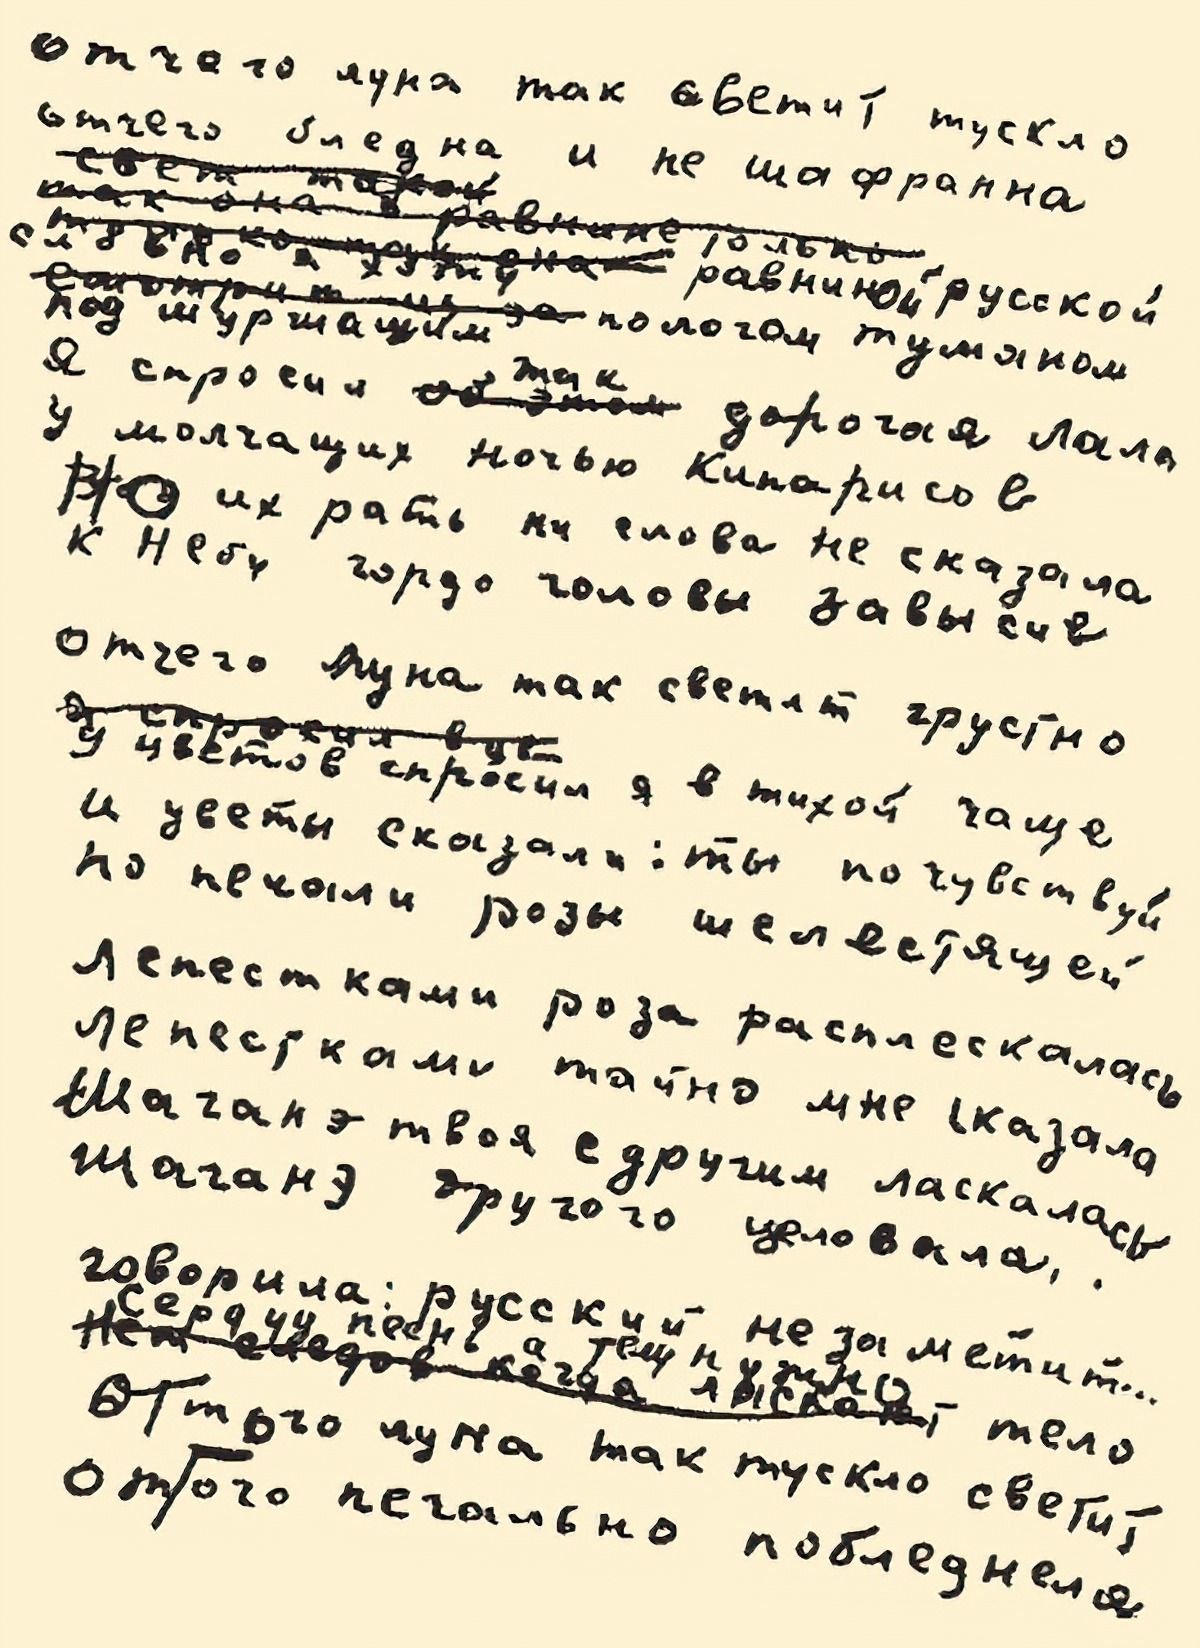 отчего луна так светит тускло
отчего бледна и не шафранна
свет такой
так она в равнине только
словно я хожу равниной русской
под шуршащим пологом туманом
Я спросил так дорогая Лала
об этом
у молчащих ночью Кипарисов
Но их рать ни слова не сказала
К Небу гордо головы завысив
Отчего Луна так светит грустно
Я спросил в цвет
У цветов спросил я в тихой чаще
и цветы сказали: ты почувствуй
по печали розы шелестящей
Лепестками роза расплескалась
Лепестками тайно мне сказала
Шаганэ твоя с другим ласкалась
Шаганэ другого целовала..
говорила: русский не заметит...
Сердцу песнь а телу нужно тело
Нет следов когда ласкают
Оттого луна так тускло светит
Оттого печально побледнела